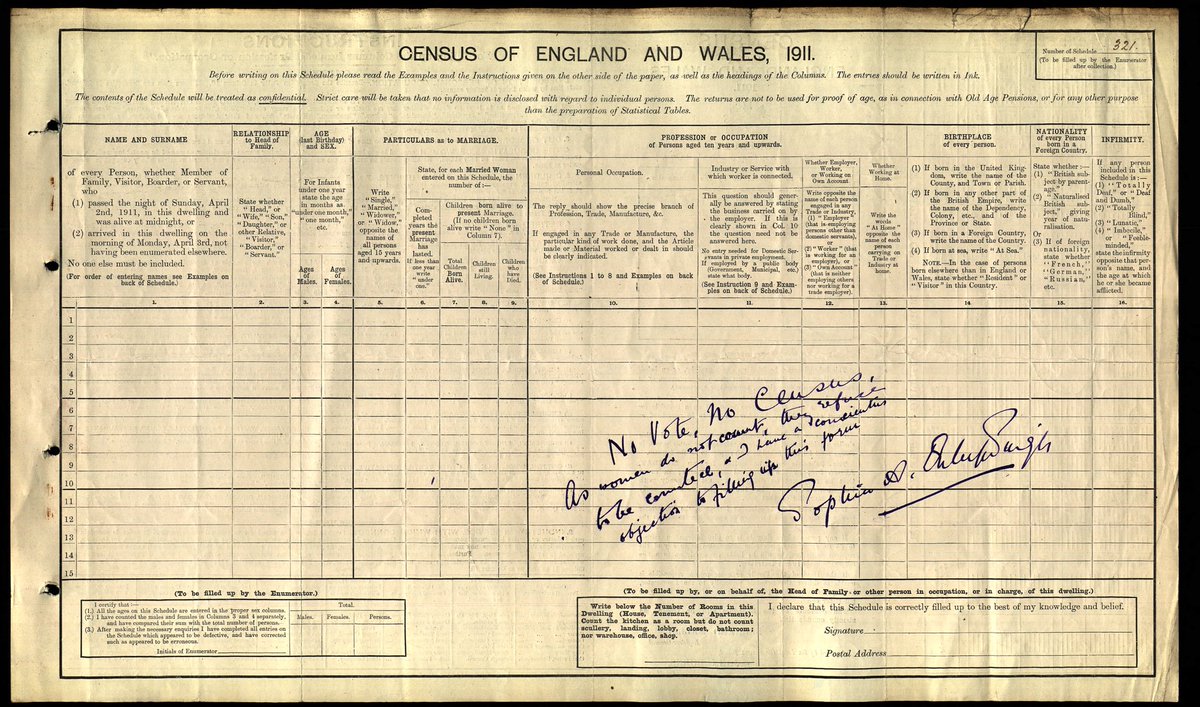 CENSUS OF ENGLAND AND WALES, 1911.
Number of Schedule 321.
(To be filled up by the Enumerator
after collection.)
Before writing on this Schedule please read the Examples and the Instructions given on the other side of the paper, as well as the headings of the Columns. The entries should be written in Ink.
The contents of the Schedule will be treated as confidential. Strict care will be taken that no information is disclosed with regard to individual persons. The returns are not to be used for proof of age, as in connection with Old Age Pensions, or for any other purpose
than the preparation of Statistical Tables.
NAME AND SURNAME
of every Person, whether Member of
Family, Visitor, Boarder, or Servant,
who
(1) passed the night of Sunday, April
2nd, 1911, in this dwelling and
was alive at midnight, or
(2) arrived in this dwelling on the
morning of Monday, April 3rd, not
having been enumerated elsewhere.
No one else must be included.
(For order of entering names see Examples on
back of Schedule.)
1.
RELATIONSHIP
to Head of
Family.
State whether
"Head," or
"Wife," "Son,"
"Daughter," or
other Relative,
"Visitor,"
"Boarder," or
"Servant."
2.
AGE
(last Birthday)
and SEX.
For Infants
under one year
state the age
in months as
"under one month,"
"one month,"
etc.
Ages
of
Males.
Ages
of
Females.
3.
4.
PARTICULARS as to MARRIAGE.
Write
"Single,"
"Married,"
"Widower,"
or "Widow,"
opposite the
names of
all persons
aged 15 years
and upwards.
5.
State, for each Married Woman
entered on this Schedule, the
number of:—
Com-
pleted
years the
present
Marriage
has
lasted.
If less than
one year
write
"under
one."
6.
Children born alive to
present Marriage.
(If no children born
alive write "None" in
Column 7).
Total
Children
Born
Alive.
7.
Children
still
Living.
8.
Children
who
have
Died.
9.
PROFESSION or OCCUPATION
of Persons aged ten years and upwards.
Personal Occupation.
The reply should show the precise branch of
Profession, Trade, Manufacture, &c.
If engaged in any Trade or Manufacture, the
particular kind of work done, and the Article
made or Material worked or dealt in should
be clearly indicated.
(See Instructions 1 to 8 and Examples on back
of Schedule.)
10.
Industry or Service with
which worker is connected.
This question should gener-
ally be answered by stating
the business carried on by
the employer. If this is
clearly shown in Col. 10
the question need not be
answered here.
No entry needed for Domestic Ser-
vants in private employment.
If employed by a public body
(Government, Municipal, etc.)
state what body.
(See Instruction 9 and Exam-
ples on back of Schedule.)
11.
Whether Employer,
Worker,
or Working on
Own Account.
Write opposite the
name of each person
engaged in any
Trade or Industry,
(1) "Employer"
(that is employing
persons other than
domestic servants),
or
(2) "Worker" (that
is working for an
employer), or
(3) "Own Account"
(that is neither
employing others
nor working for a
trade employer).
12.
Whether
Working at
Home.
Write the
words
"At Home"
opposite the
name of each
person
carrying on
Trade or
Industry at
home.
13.
BIRTHPLACE
of every person.
(1) If born in the United King-
dom, write the name of the
County, and Town or Parish.
(2) If born in any other part of
the British Empire, write
the name of the Dependency,
Colony, etc., and of the
Province or State.
(3) If born in a Foreign Country,
write the name of the Country.
(4) If born at sea, write "At Sea."
NOTE.—In the case of persons
born elsewhere than in England or
Wales, state whether "Resident" or
"Visitor" in this Country.
14.
NATIONALITY
of every Person
born in a
Foreign Country.
State whether:—
(1) "British sub-
ject by parent-
age,"
(2) "Naturalised
British sub-
ject," giving
year of nat-
uralisation.
Or
(3) If of foreign
nationality,
state whether
"French,"
"German,"
"Russian,"
etc.
15.
INFIRMITY.
If any person
included in this
Schedule is:—
(1) "Totally
Deaf," or "Deaf
and Dumb,"
(2) "Totally
Blind,"
(3) "Lunatic,"
(4) "Imbecile,"
or "Feeble-
minded,"
state the infirmity
opposite that per-
son's name, and
the age at which
he or she became
afflicted.
16.
1
2
3
4
5
6
7
8
9
10
11
12
13
14
15
No Vote, No Census.
As women do not count, they refuse
to be counted, & I have a conscientious
objection to filling up this form
Sophia A. Duleep Singh
(To be filled up by the Enumerator.)
I certify that:—
(1.) All the ages on this Schedule are entered in the proper sex columns.
(2.) I have counted the males and females in Columns 3 and 4 separately,
and have compared their sum with the total number of persons.
(3.) After making the necessary enquiries I have completed all entries on
the Schedule which appeared to be defective, and have corrected
such as appeared to be erroneous.
Initials of Enumerator
Total.
Males. Females. Persons.
(To be filled up by, or on behalf of, the Head of Family or other person in occupation, or in charge, of this dwelling.)
Write below the Number of Rooms in this
Dwelling (House, Tenement, or Apartment).
Count the kitchen as a room but do not count
scullery, landing, lobby, closet, bathroom;
nor warehouse, office, shop.
I declare that this Schedule is correctly filled up to the best of my knowledge and belief.
Signature
Postal Address